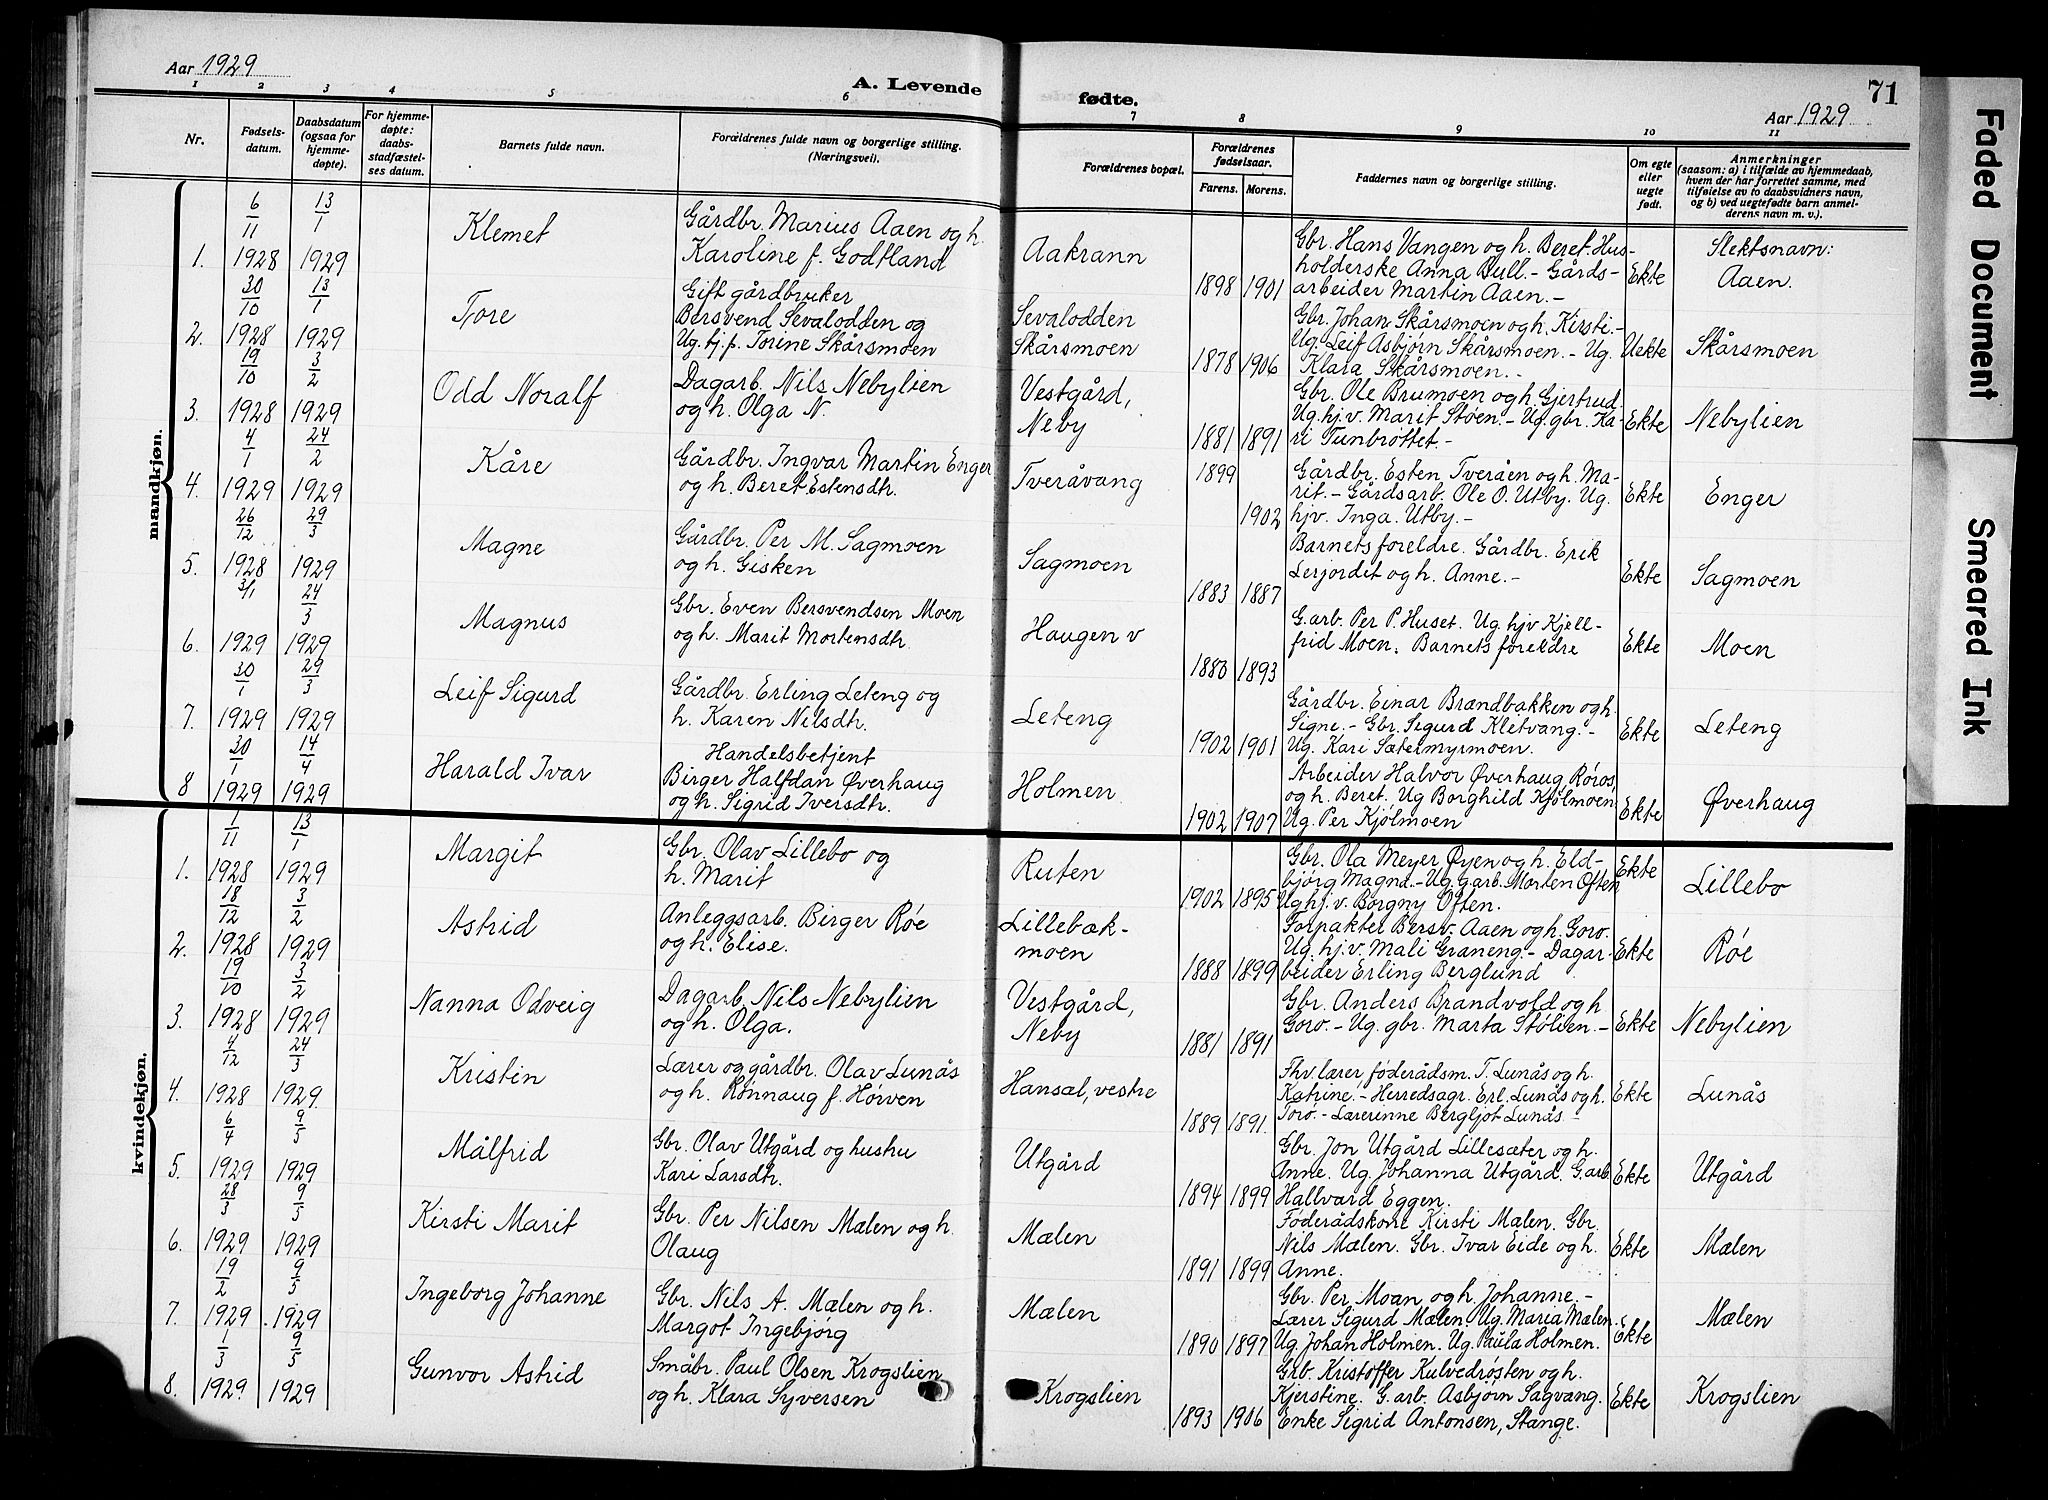 Aar 1929
A. Levende fødte.
71
Aar 1929
1 2 3 4 5 6 7 8 9 10 11
Nr.
Fødsels-datum.
Daabsdatum (ogsaa for hjemme-døpte).
For hjemme-døpte: daabs-stadfæstel-ses datum.
Barnets fulde navn.
Forældrenes fulde navn og borgerlige stilling. (Næringsvei).
Forældrenes bopæl.
Forældrenes fødselsaar.
Farens. Morens.
Faddernes navn og borgerlige stilling.
Om egte eller uegte født.
Anmerkninger (saasom: a) i tilfælde av hjemmedaab, hvem der har forrettet samme, med tilføielse av to daabsvidners navn, og b) ved uegtefødte barn anmel-derens navn m. v.).
mandkjøn.
1. 6/11 1928 13/1 1929 Klemet
Gårdbr. Marius Aaen og h.
Karoline f. Godtland
Aakrann 1898 1901
Gbr. Hans Vangen og h. Beret. Hus-
holderske Anna Bull. - Gårds-
arbeider Martin Aaen. -
Ekte
Slektsnavn:
Aaen.
2. 30/10 1928 13/1 1929 Tore
Gift gårdbruker
Bersvend Sevalodden og
Ug. hj. p. Torine Skårsmoen
Sevalodden
Skårsmoen
1878 1906
Gbr. Johan Skårsmoen og h. Kirsti. -
Ug. Leif Asbjørn Skårsmoen. - Ug.
Klara Skårsmoen. -
Uekte Skårsmoen
3. 19/10 1928 3/2 1929 Odd Noralf
Dagarb. Nils Nebylien
og h. Olga N.
Vestgård,
Neby
1881 1891
Gbr. Ole Brumoen og h. Gjertrud.
Ug. hj. v. Marit Støen. - Ug. gbr. Ka-
ri Tunbrottet -
Ekte Nebylien
4. 4/1 1929 24/2 1929 Kåre
Gårdbr. Ingvar Martin Enger
og h. Beret Estensdtr.
Tveråvang 1899 1902
Gårdbr. Esten Tveråen og h. Ma-
rit. - Gårdsarb. Ole O. Utby. Ug.
hjv. Inga. Utby. -
Ekte Enger
5. 26/12 1928 29/3 1929 Magne
Gårdbr. Per M. Sagmoen
og h. Gisken
Sagmoen 1883 1887
Barnets foreldre. Gårdbr. Erik
Lerjordet og h. Anne. -
Ekte Sagmoen
6. 3/1 1929 24/3 1929 Magnus
Gbr. Even Bersvendsen Moen
og h. Marit Mortensdtr.
Haugen v 1880 1893
G.arb. Per P. Huset. Ug. hjv Kjell-
frid Moen. Barnets foreldre
Ekte Moen
7. 30/1 1929 29/3 1929 Leif Sigurd
Gårdbr. Erling Leteng og
h. Karen Nilsdtr.
Leteng 1902 1901
Gårdbr. Einar Brandbakken og h.
Signe. - Gbr. Sigurd Kletvang. -
Ug. Kari Sætermyrmoen.
Ekte Leteng
8 30/1 1929 14/4 1929 Harald Ivar
Handelsbetjent
Birger Halfdan Øverhaug
og h. Sigrid Iversdtr.
Holmen. 1902 1907
Arbeider Halvor Øverhaug, Røros,
og h. Beret. Ug Borghild Kjølmoen
Ug. Per Kjølmoen
Ekte Øverhaug
kvindekjøn.
1. 1/11 1928 13/1 1929 Margit
Gbr. Olav Lillebo og
h. Marit
Ruten 1902 1895
Gbr. Ola Meyer Øyen og h. Eld-
bjørg Magna. - Ug. g.arb. Morten Often
Ug hj. v. Borgny Often.
Ekte Lillebo
2. 18/12 1928 3/2 1929 Astrid
Anleggsarb. Birger Røe
og h. Elise.
Lillebæk-
moen
1888 1899
Forpakter Bersv. Aaen og h. Goro.
Ug. hj. v. Mali Graneng. - Dagar-
beider Erling Berglund
Ekte Røe
3. 19/10 1928 3/2 1929 Nanna Odveig
Dagarb. Nils Nebylien
og h. Olga.
Vestgård,
Neby
1881 1891
Gbr. Anders Brandvold og h
Goro. - Ug. gbr. Marta Stølien. -
Ekte Nebylien
4. 4/12 1928 24/3 1929. Kristin
Lærer og gårdbr. Olav Lunås
og h. Rønnaug f. Hørven
Hansæl, vestre 1889 1891.
Fhv. lærer føderådsm. T. Lunås og h.
Katrine. - Herredsagr. Erl. Lunås og h.
Toro. - Lærerinne Bergljot Lunås -
Ekte Lunås
5. 6/4 1929 9/5 1929 Målfrid
Gbr. Olav Utgård og hustru
Kari Larsdtr.
Utgård 1894 1899
Gbr. Jon Utgård Lillesæter og h.
Anne. Ug. Johanna Utgård. G.arb.
Hallvard Eggen.
Ekte Utgård
6. 28/3 1929 9/5 1929 Kirsti Marit
Gbr. Per Nilsen Mælen og h.
Olaug
Mælen 1891 1899
Føderådskone Kirsti Mælen. Gbr.
Nils Mælen. Gbr. Ivar Eide og h.
Anne.
Ekte Mælen
7. 19/2 1929 9/5 1929 Ingeborg Johanne
Gbr. Nils A. Mælen og h.
Margot Ingebjørg
Mælen 1890 1897
Gbr. Per Moan og h Johanne. -
Lærer Sigurd Mælen. Ug. Maria Mælen.
Ug. Johan Holmen. Ug. Paula Holmen.
Ekte Mælen
8. 1/3 1929 9/5 1929 Gunvor Astrid
Småbr. Paul Olsen Krogslien
og h. Klara Syversen
Krogslien 1893 1906
Grb. Kristoffer Kulvedrøsten og h.
Kjerstine. G. arb. Asbjørn Sagvang.
Enke Sigrid Antonsen, Stange.
Ekte Krogslien
Faded Document
Smeared Ink